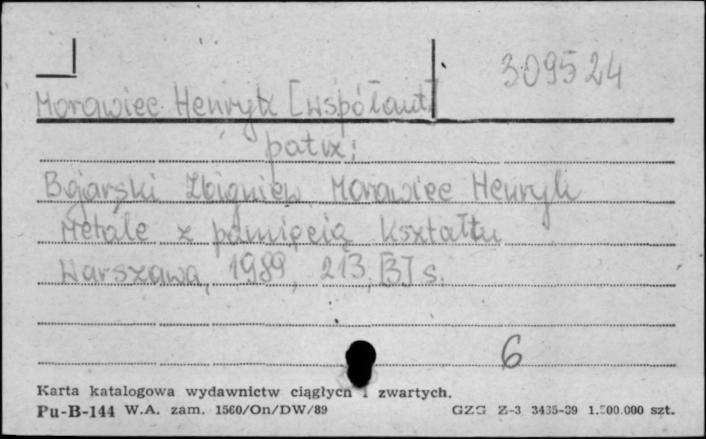 309524
Morawiec Henryk [współaut]
patrz:
Bojarski Zbigniew, Morawiec Henryk
Metale z pamięcią kształtu
Warszawa, 1989, 213, [3] s.
6
Karta katalogowa wydawnictw ciągłych i zwartych.
Pu-B-144 W.A. zam. 1560/On/DW/89 GZG Z-3 3435-89 1.500.000 szt.